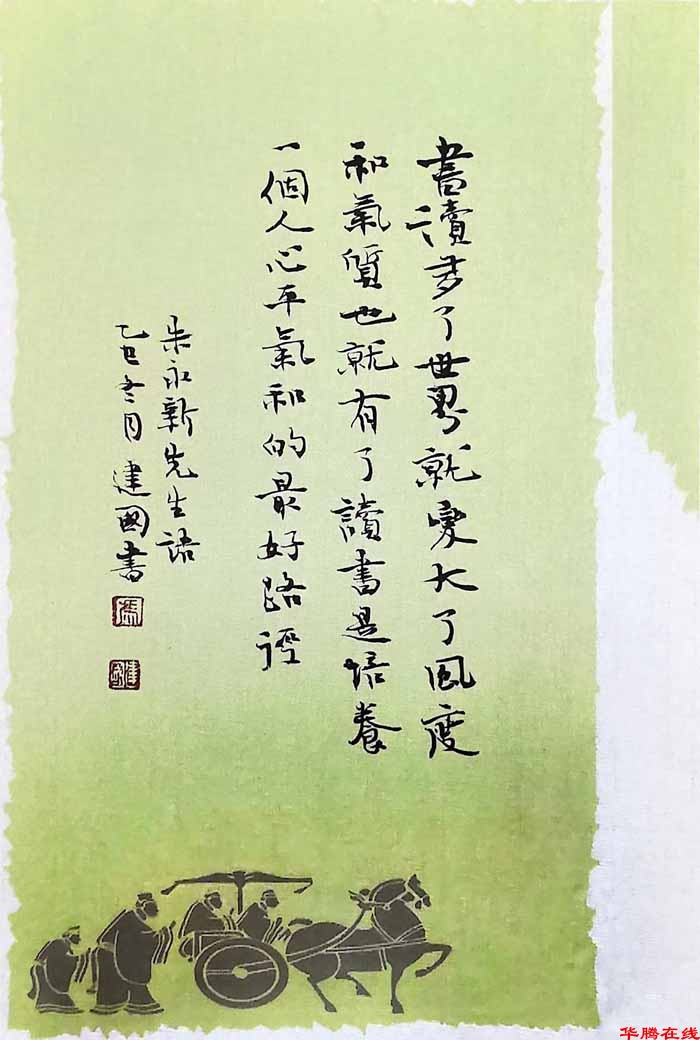 書讀多了世界就變大了風度
和氣質也就有了讀書是培養
一個人心平氣和的最好路徑
朱永新先生語
乙巳冬月建國書
馮
建國
华腾在线